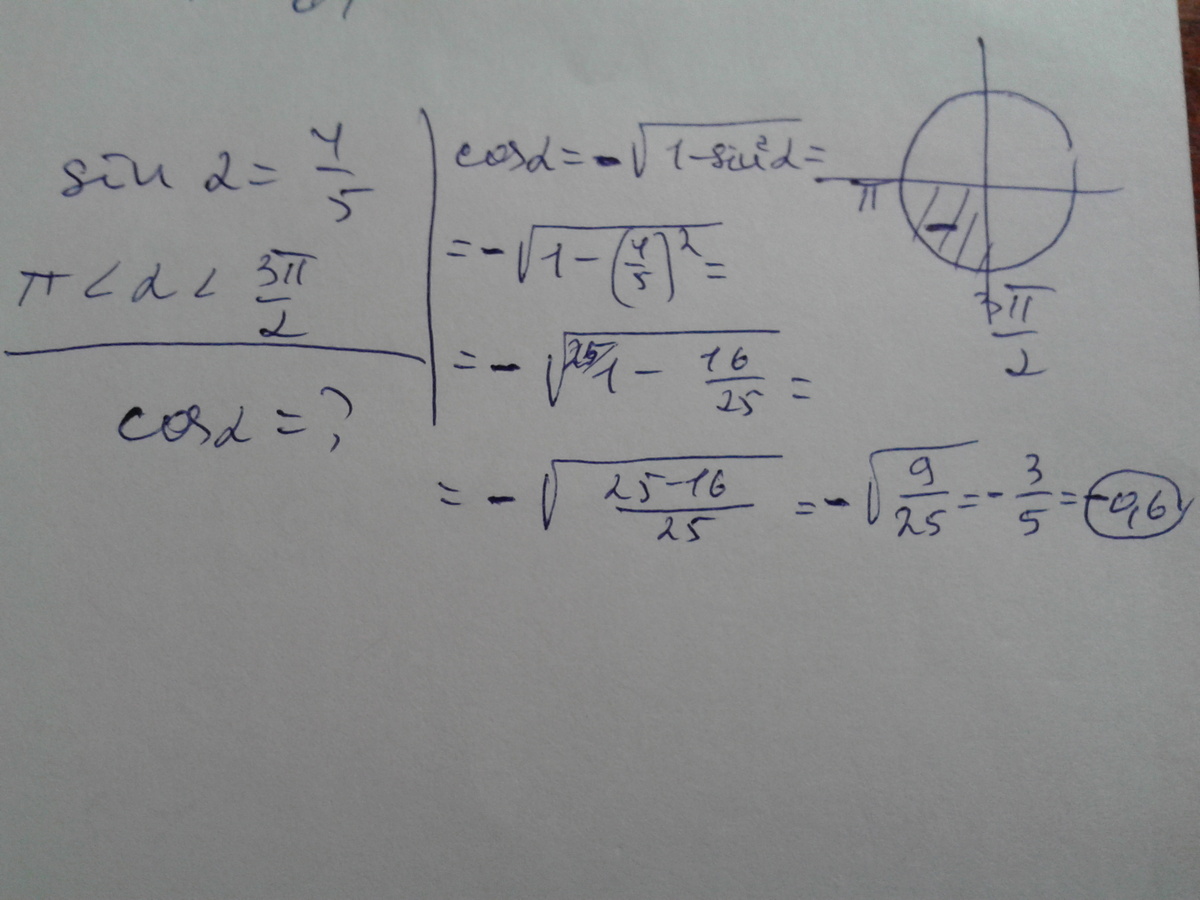 sin α = 4/5
π < α < 3π/2
cos α = ?
cos α = -√(1 - sin²α) =
= -√(1 - (4/5)²) =
= -√(²⁵⁄1 - 16/25) =
= -√((25-16)/25) = -√(9/25) = -3/5 = -0,6
π
-
3π/2